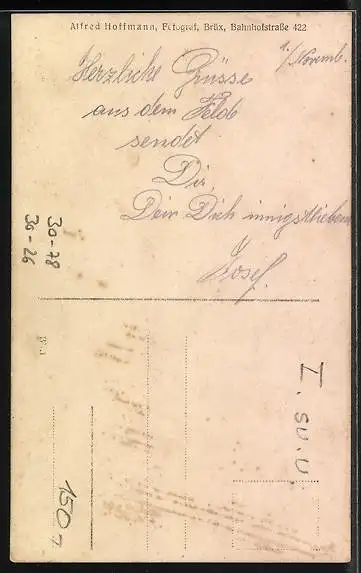 Alfred Hoffmann, Fotograf, Brüx, Bahnhofstraße 422
1./Novemb.
Herzliche Grüsse
aus dem Feld
sendet
Dir
Dein Dich innigstlieben
Josef.
30-78
30-26
I. SU. U.
150